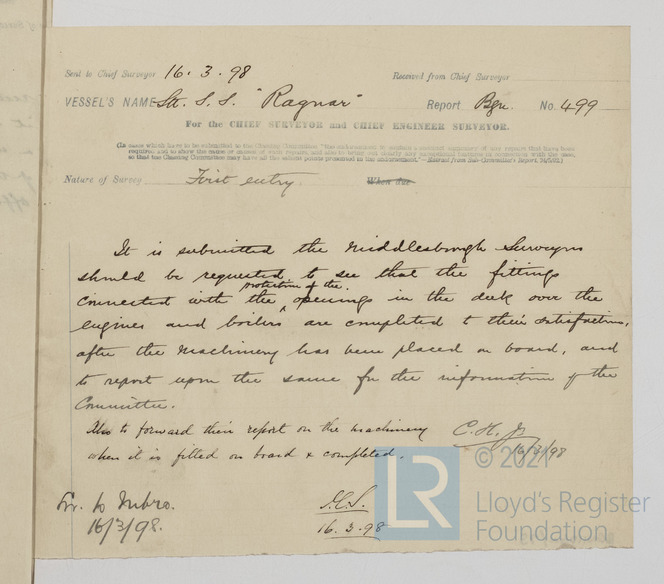 Sent to Chief Surveyor 16.3.98 Received from Chief Surveyor
VESSEL'S NAME S.S. "Ragnar" Report Bgn. No. 499
For the CHIEF SURVEYOR and CHIEF ENGINEER SURVEYOR.
Nature of Survey First entry. When due
It is submitted the Middlesbrough Surveyors
should be requested to see that the fittings
protection of the
connected with the ^ openings in the deck over the
engines and boilers are completed to their satisfaction,
after the Machinery has been placed on board, and
to report upon the same for the information of the
Committee.
Also to forward their report on the machinery
when it is fitted on board & completed.
C.H. Jr
16/3/98
to Mbro.
16/3/98.
16.3.98
© 2021
LR
Lloyd's Register
Foundation